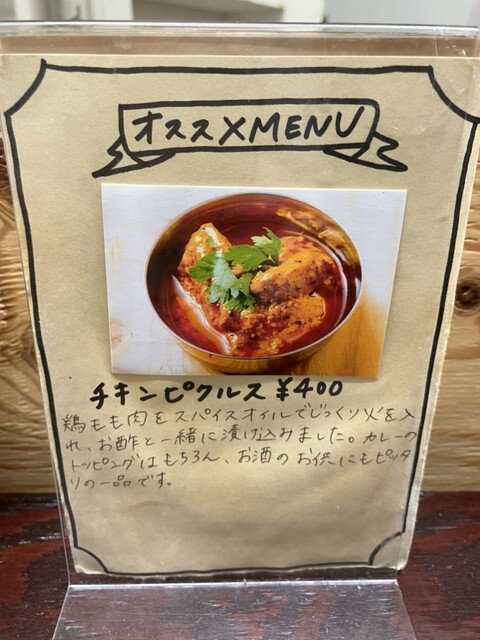 オススメMENU
チキンピクルス ¥400
鶏もも肉をスパイスオイルでじっくり火を入
れ、お酢と一緒に漬け込みました。カレーの
トッピングはもちろん、お酒のお供にもピッタ
リの一品です。